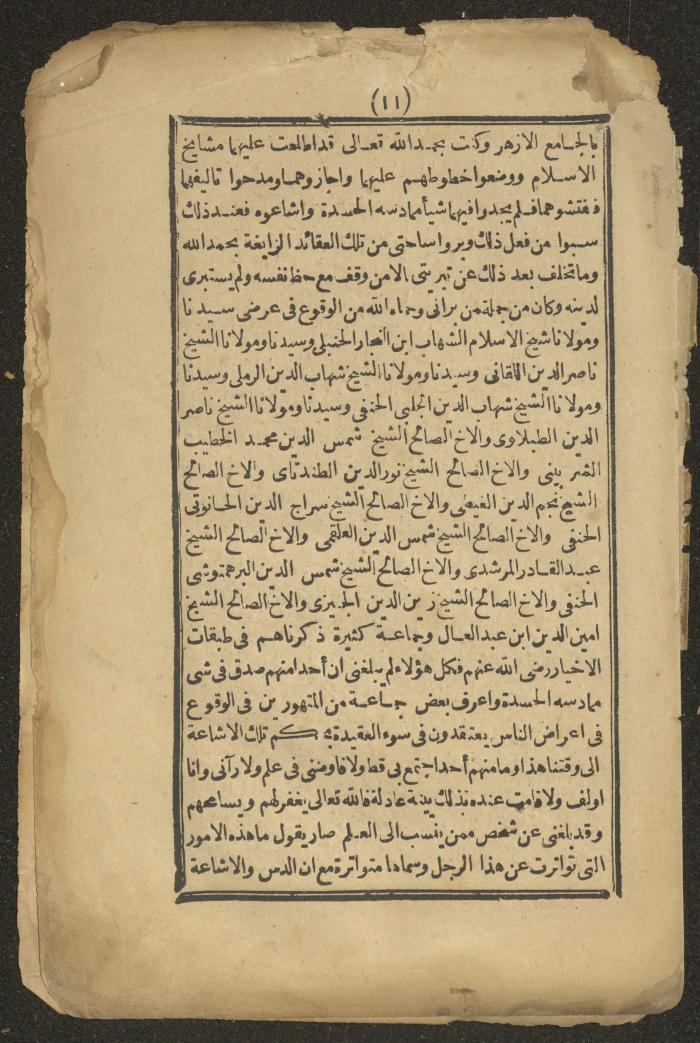 (١١)
بالجامع الازهر وكنت بحمد الله تعالى قد اطلعت عليهما مشايخ
الاسلام ووضعوا خطوطهم عليهما واجازوهما ومدحوا تاليفهما
ففتشوهما فلم يجدوا فيهما شيأ مما دسه الحسدة واشاعوه فعند ذلك
سبوا من فعل ذلك وبروا ساحتى من تلك العقائد الزايغة بحمد الله
وما تخلف بعد ذلك عن تبريتى الا من وقف مع حظ نفسه ولم يستبرى
لدينه وكان من جملة من برانى وحماه الله من الوقوع فى عرضى سيدنا
ومولانا شيخ الاسلام الشهاب ابن النجار الحنبلى وسيدنا ومولانا الشيخ
ناصر الدين اللقانى وسيدنا ومولانا الشيخ شهاب الدين الرملى وسيدنا
ومولانا الشيخ شهاب الدين الجلبى الحنفى وسيدنا ومولانا الشيخ ناصر
الدين الطبلاوى والاخ الصالح الشيخ شمس الدين محمد الخطيب
الشربينى والاخ الصالح الشيخ نور الدين الطندتاى والاخ الصالح
الشيخ نجم الدين الغيطى والاخ الصالح الشيخ سراج الدين الحانوتى
الحنفى والاخ الصالح الشيخ شمس الدين العلقمى والاخ الصالح الشيخ
عبد القادر المرشدى والاخ الصالح الشيخ شمس الدين البرهمتوشى
الحنفى والاخ الصالح الشيخ زين الدين الجيزى والاخ الصالح الشيخ
امين الدين ابن عبد العال وجماعة كثيرة ذكرناهم فى طبقات
الاخيار رضى الله عنهم فكل هؤلاء لم يبلغنى ان أحدا منهم صدق فى شى
مما دسه الحسدة واعرف بعض جماعة من المتهورين فى الوقوع
فى اعراض الناس يعتقدون فى سوء العقيدة بحكم تلك الاشاعة
الى وقتنا هذا وما منهم أحد اجتمع بى قط ولا فاوضنى فى علم ولا رآنى وانا
اولف ولا قامت عنده بذلك بينة عادلة فالله تعالى يغفر لهم ويسامحهم
وقد بلغنى عن شخص ممن ينسب الى العلم صار يقول ما هذه الامور
التى تواترت عن هذا الرجل وسماها متواترة مع ان الدس والاشاعة